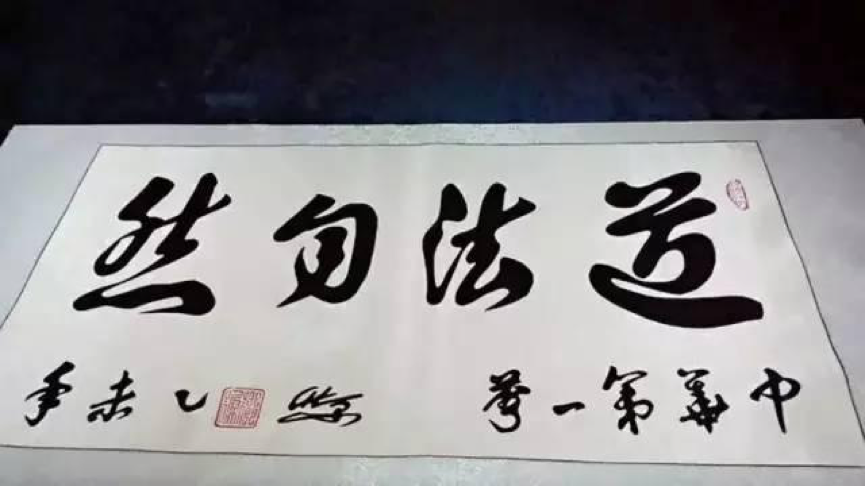 道法自然
中華第一
乙未年